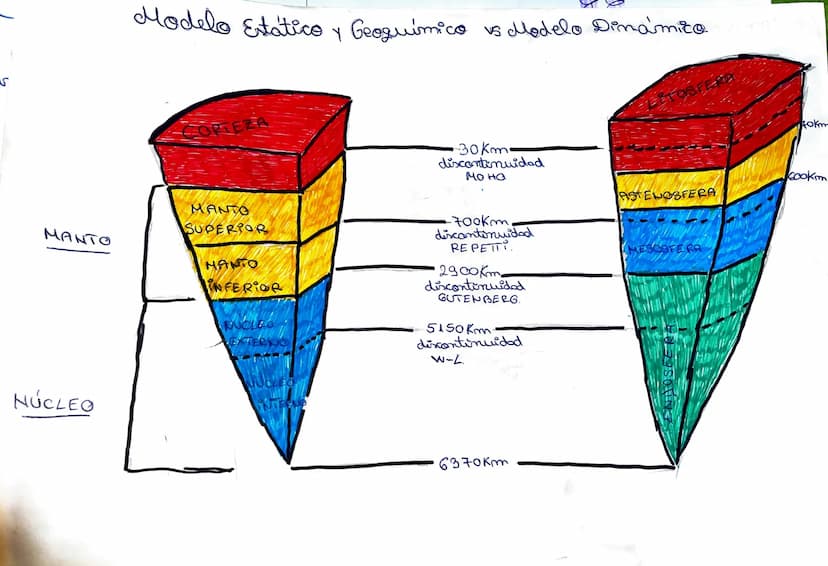 Modelo Estático y Geoquímico vs Modelo Dinámico.
CORTEZA
LITOSFERA
30Km
discontinuidad
MOHO
MANTO
SUPERIOR
ASTENOSFERA
600Km
MANTO
700Km
discontinuidad
REPETTI.
MESOSFERA
MANTO
INFERIOR
2900Km
discontinuidad
GUTENBERG.
NÚCLEO
EXTERNO
5150Km
discontinuidad
W-L
NÚCLEO
INTERNO
NÚCLEO
6370Km